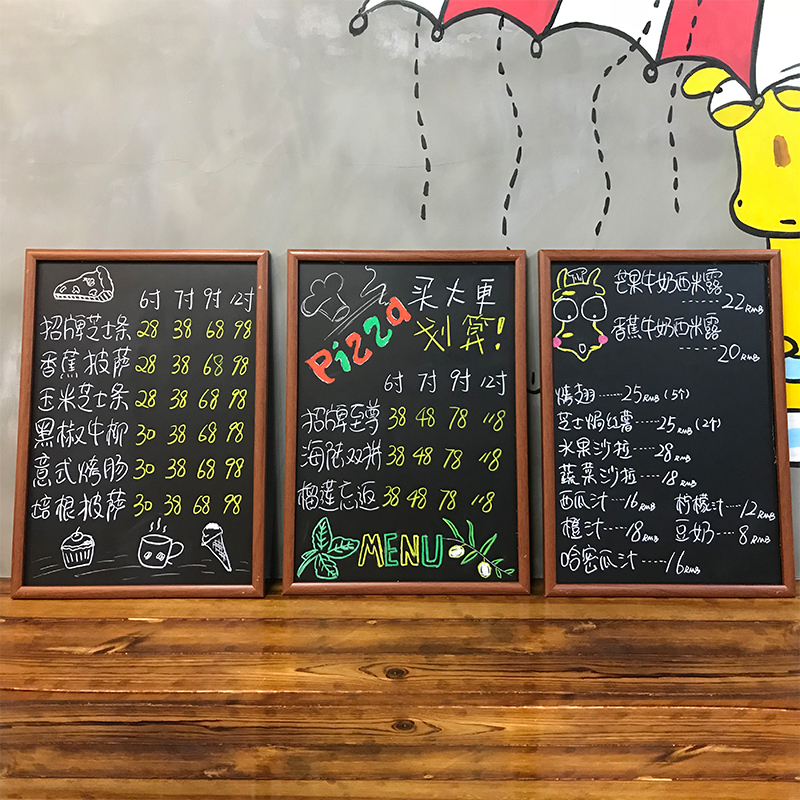 6寸 7寸 9寸 12寸
招牌芝士条 28 38 68 98
香蕉披萨 28 38 68 98
玉米芝士条 28 38 68 98
黑椒牛柳 30 38 68 98
意式烤肠 30 38 68 98
培根披萨 30 38 68 98
买大更
划算!
Pizza
6寸 7寸 9寸 12寸
招牌至尊 38 48 78 118
海陆双拼 38 48 78 118
榴莲忘返 38 48 78 118
MENU
芒果牛奶西米露
------22RMB
香蕉牛奶西米露
-----20RMB
烤翅----25RMB(5个)
芝士焗红薯----25RMB(2个)
水果沙拉----28RMB
蔬菜沙拉----18RMB
西瓜汁--16RMB 柠檬汁---12RMB
橙汁---18RMB 豆奶--8RMB
哈密瓜汁----16RMB